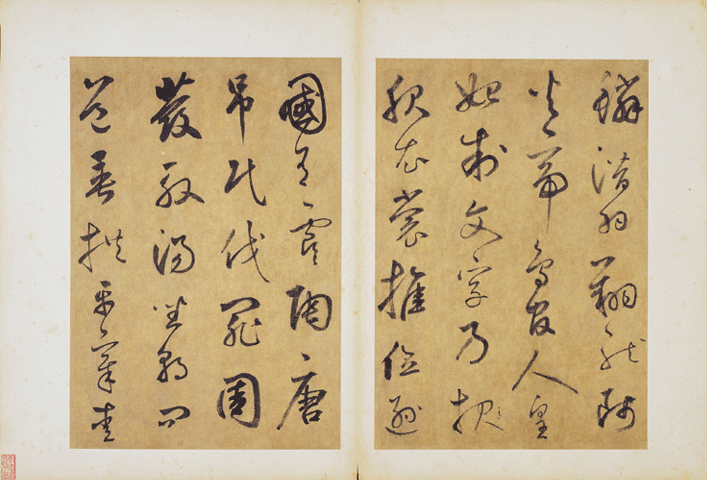 鱗潛羽翔龍師
火帝鳥官人皇
始制文字乃服
服衣裳推位遜
國有虞陶唐
吊民伐罪周
發殷湯坐朝問
道垂拱平章愛